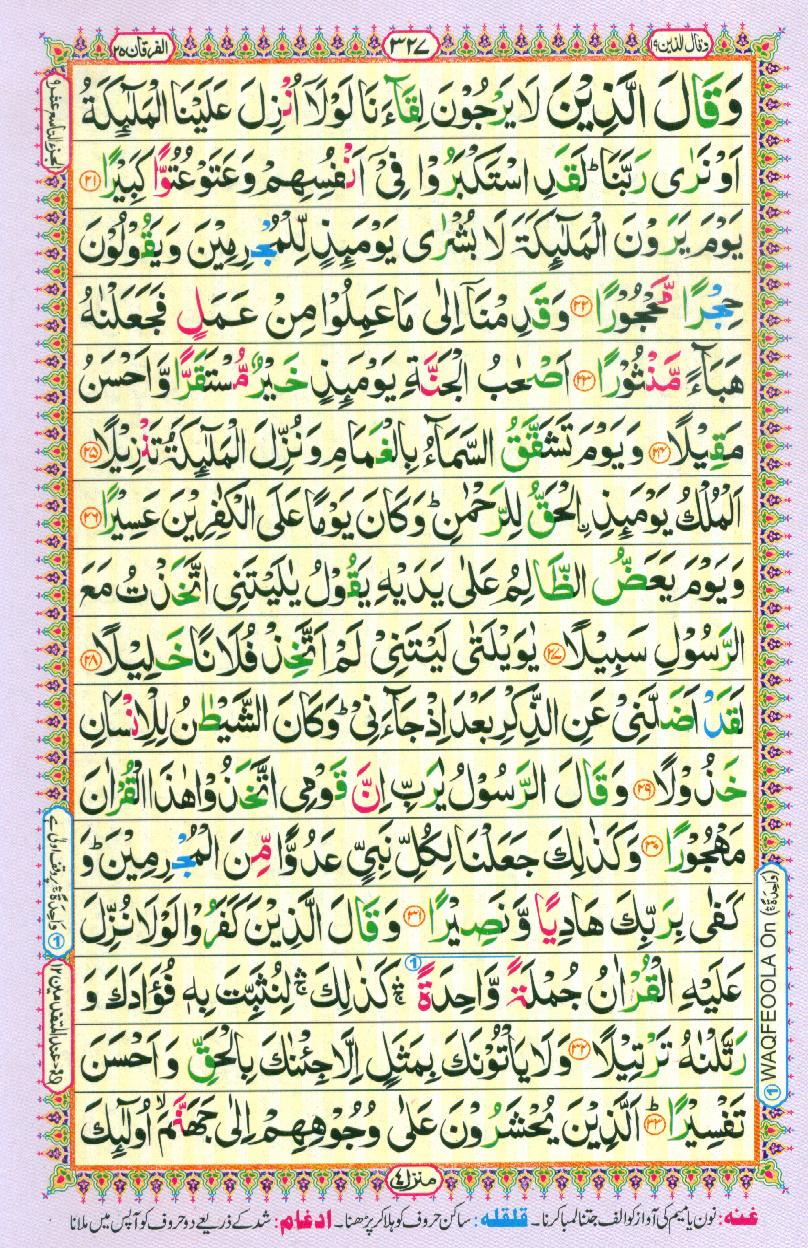 وقال الذین ۱۹
۳۲۷
الفرقان ۲۵
وَقَالَ الَّذِیْنَ لَا یَرْجُوْنَ لِقَآءَنَا لَوْلَاۤ اُنْزِلَ عَلَیْنَا الْمَلٰٓىِٕكَةُ
اَوْ نَرٰى رَبَّنَا ؕ لَقَدِ اسْتَكْبَرُوْا فِیْۤ اَنْفُسِهِمْ وَعَتَوْ عُتُوًّا كَبِیْرًا ۲۱
یَوْمَ یَرَوْنَ الْمَلٰٓىِٕكَةَ لَا بُشْرٰى یَوْمَىِٕذٍ لِّلْمُجْرِمِیْنَ وَیَقُوْلُوْنَ
حِجْرًا مَّحْجُوْرًا ۲۲ وَقَدِمْنَاۤ اِلٰى مَا عَمِلُوْا مِنْ عَمَلٍ فَجَعَلْنٰهُ
هَبَآءً مَّنْثُوْرًا ۲۳ اَصْحٰبُ الْجَنَّةِ یَوْمَىِٕذٍ خَیْرٌ مُّسْتَقَرًّا وَّاَحْسَنُ
مَقِیْلًا ۲۴ وَیَوْمَ تَشَقَّقُ السَّمَآءُ بِالْغَمَامِ وَنُزِّلَ الْمَلٰٓىِٕكَةُ تَنْزِیْلًا ۲۵
اَلْمُلْكُ یَوْمَىِٕذِ ِ۟الْحَقُّ لِلرَّحْمٰنِ ؕ وَكَانَ یَوْمًا عَلَى الْكٰفِرِیْنَ عَسِیْرًا ۲۶
وَیَوْمَ یَعَضُّ الظَّالِمُ عَلٰى یَدَیْهِ یَقُوْلُ یٰلَیْتَنِی اتَّخَذْتُ مَعَ
الرَّسُوْلِ سَبِیْلًا ۲۷ یٰوَیْلَتٰى لَیْتَنِیْ لَمْ اَتَّخِذْ فُلَانًا خَلِیْلًا ۲۸
لَقَدْ اَضَلَّنِیْ عَنِ الذِّكْرِ بَعْدَ اِذْ جَآءَنِیْ ؕ وَكَانَ الشَّیْطٰنُ لِلْاِنْسَانِ
خَذُوْلًا ۲۹ وَقَالَ الرَّسُوْلُ یٰرَبِّ اِنَّ قَوْمِی اتَّخَذُوْا هٰذَا الْقُرْاٰنَ
مَهْجُوْرًا ۳۰ وَكَذٰلِكَ جَعَلْنَا لِكُلِّ نَبِیٍّ عَدُوًّا مِّنَ الْمُجْرِمِیْنَ ؕ وَ
كَفٰى بِرَبِّكَ هَادِیًا وَّنَصِیْرًا ۳۱ وَقَالَ الَّذِیْنَ كَفَرُوْا لَوْلَا نُزِّلَ
عَلَیْهِ الْقُرْاٰنُ جُمْلَةً وَّاحِدَةً ۛۚ كَذٰلِكَ ۛۚ لِنُثَبِّتَ بِهٖ فُؤَادَكَ وَ
رَتَّلْنٰهُ تَرْتِیْلًا ۳۲ وَلَا یَاْتُوْنَكَ بِمَثَلٍ اِلَّا جِئْنٰكَ بِالْحَقِّ وَاَحْسَنَ
تَفْسِیْرًا ؕ ۳۳ اَلَّذِیْنَ یُحْشَرُوْنَ عَلٰى وُجُوْهِهِمْ اِلٰى جَهَنَّمَ ۙ اُولٰٓىِٕكَ
۱ WAQFEOOLA On (وَاحِدَةً ۛۚ)
منزل ۴
غنه: نون یا میم کی آواز کو الف جتنا لمبا کرنا۔ قلقله: ساکن حروف کو ہلا کر پڑھنا۔ ادغام: شد کے ذریعے دو حروف کو آپس میں ملانا